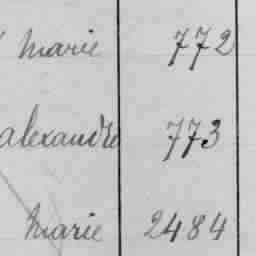 Marie 772
Alexandre 773
Marie 2484